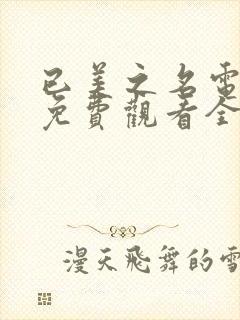 已美之名電
免費觀看全
漫天飛舞的雪